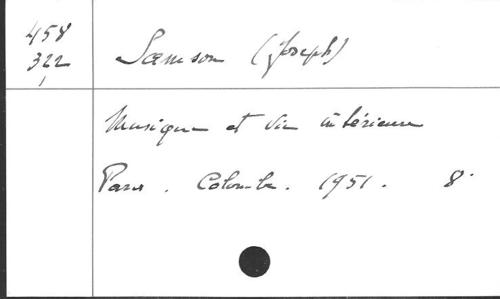 458
322
Samson (Joseph)
Musique et vie intérieure
Paris. Colombe. 1951. 8°